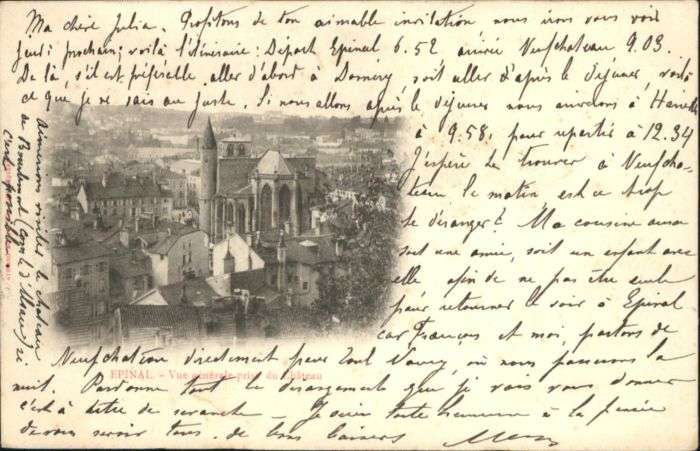 Ma chère Julia. Profitons de ton aimable invitation nous irons vous voir
Jeudi prochain; voilà l'itinéraire: Départ Epinal 6.52 arrivée Neufchateau 9.03.
De là, s'il est préférable aller d'abord à soit aller d'après le déjeuner, voilà
ce que je ne sais au juste. Si nous allons après le déjeuner nous arriverons à
à 9.58, pour repartir à 12.34
J'espère te trouver à Neufcha-
teau le matin est ce trop
te déranger? Ma cousine aura
soit une amie, soit un enfant avec
elle afin de ne pas être seule
pour retourner le soir à Epinal
car François et moi, partons de
Neufchateau directement pour Toul où nous passerons la
nuit. Pardonne tout le dérangement que je vais vous donner
c'est à titre de revanche — Je suis toute heureuse à la pensée
de vous revoir tous. de bons baisers
Aimerions visiter le chateau
de (Cap. d'Ileau) si
c'est possible
EPINAL - Vue générale prise du Château